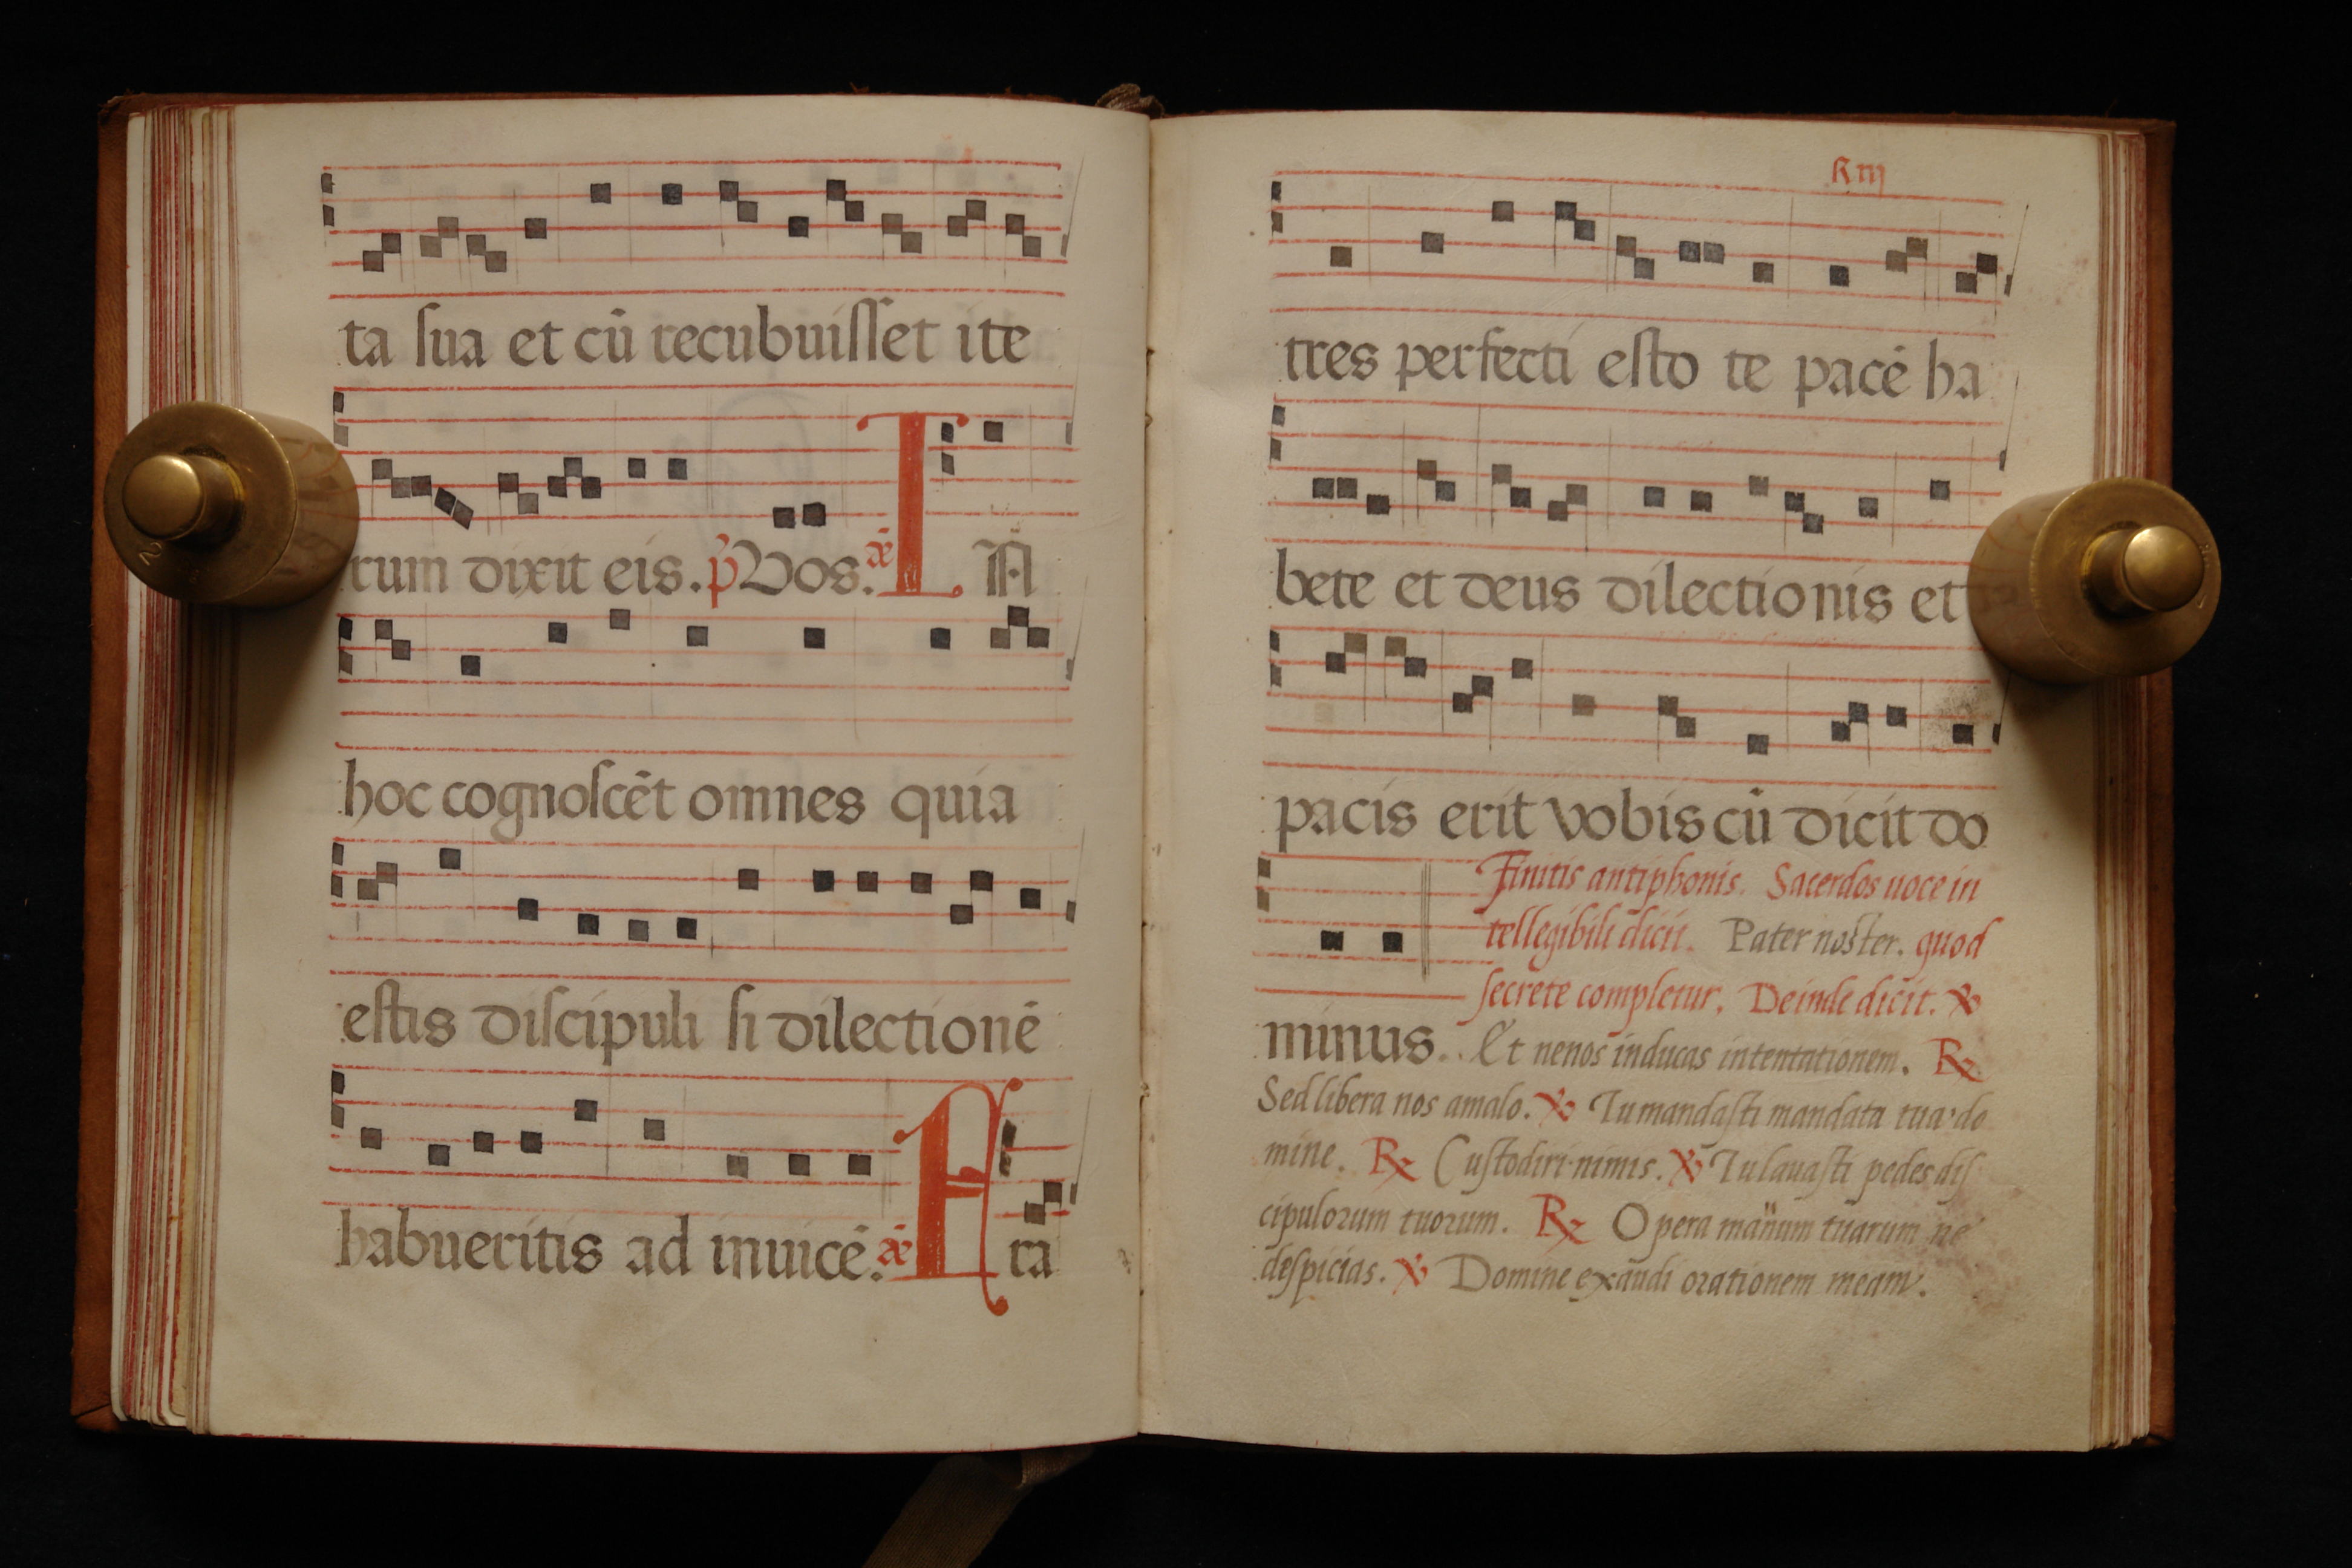 ta ſua et cū recubuiſſet ite
rum dixit eis. p̄ Vos. añ I Ñ
hoc cognoſcēt omnes quia
eſtis diſcipuli ſi dilectionē
habueritis ad inuicē. añ F ra
tres perfecti eſto te pacē ha
bete et deus dilectionis et
pacis erit vobis cū dicit do
Finitis antiphonis. Sacerdos uoce in
tellegibili dicit. Pater noster. quod
ſecrete completur. Deinde dicit. ℣
minus. Et nenos inducas intentationem. ℟
Sed libera nos amalo. ℣ Tu mandaſti mandata tua do
mine. ℟ Cuſtodiri nimis. ℣ Tu lauaſti pedes diſ
cipulorum tuorum. ℟ Opera manuum tuarum ne
deſpicias. ℣ Domine exaudi orationem meam.